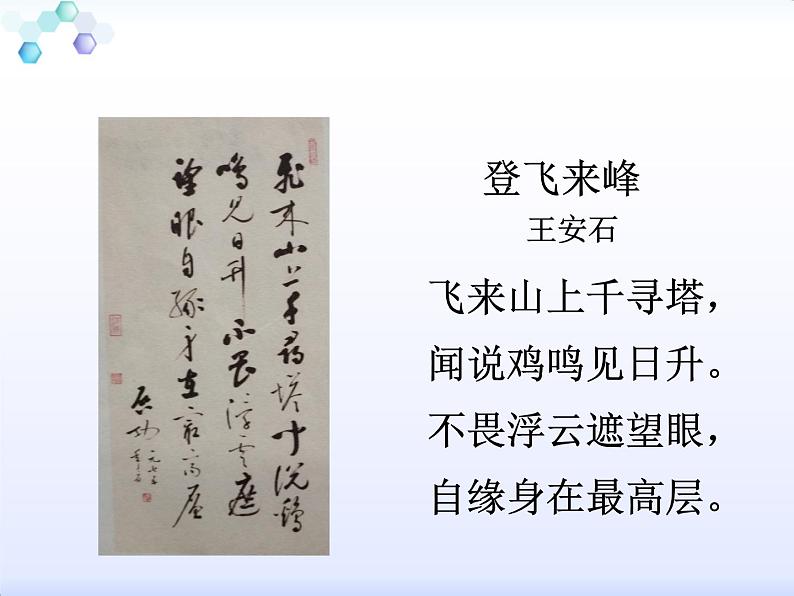 飞来山上千寻塔闻说鸡
鸣见日升不畏浮云遮
望眼自缘身在最高层
启功
登飞来峰
王安石
飞来山上千寻塔，
闻说鸡鸣见日升。
不畏浮云遮望眼，
自缘身在最高层。